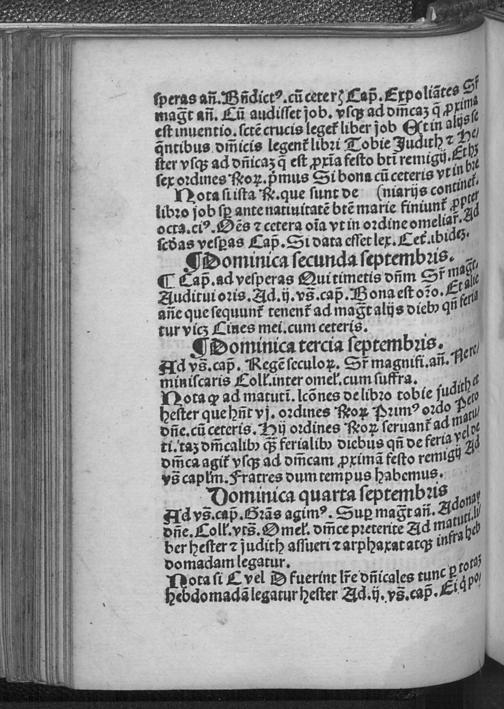 speras añ. Bn̄dictꝰ. cū ceterꝭ Cap̄. Expoliātes Sr̄
maḡt añ. Cū audisset job. vsqꝫ ad dm̄caꝫ q̄ ꝓxima
est inuentio. sctē crucis leget̄ liber job Est in alijs se
q̄ntibus dm̄icis legent̄ libri Tobie Judith ⁊ He/
ster vsqꝫ ad dn̄icaꝫ q̄ est ꝓxīa festo btī remigij. Et hꝫ
sex ordines ꝶoꝝ. p̄mus Si bona cū ceteris vt in bre
Nota si ista ꝶ. que sunt de (niarijs continet̄.
libro job sꝑ ante natiuitatē btē marie finiunt̄ ꝓpter
octa. eiꝰ. Oēs ⁊ cetera oīa vt in ordine omeliaꝝ. Ad
scd̄as vesꝑas Cap̄. Si data esset lex. Cet̄. ibideꝫ.
¶ Dominica secunda septembris.
¶ Cap̄. ad vesperas Qui timetis dn̄m Sr̄ maḡt.
Auditui oris. Ad. ij. vs̄. cap̄. Bona est oŕo. Et alie
añe que sequunt̄ tenent̄ ad maḡt alijs diebꝰ qn̄ feria
tur vicꝫ Ciues mei. cum ceteris.
¶ Dominica tercia septembris.
Ad vs̄. cap̄. Regē seculoꝝ. Sr̄ magnifi. añ. Ne re/
miniscaris Coll̄. inter omel̄. cum suffra.
Nota ꝙ ad matutī. lcōnes de libro tobie judith et
hester que hn̄t vj. ordines ꝶoꝝ Primꝰ ordo Peto
dn̄e. cū ceteris. Hij ordines ꝶoꝝ seruant̄ ad matu/
ti. taꝫ dm̄calibꝰ qꝫ ferialibꝰ diebus qn̄ de feria vel de
dm̄ca agit̄ vsqꝫ ad dm̄cam ꝓximā festo remigij Ad
vs̄ caplm̄. Fratres dum tempus habemus.
Dominica quarta septembris
Ad vs̄. cap̄. Grās agimꝰ. Suꝑ maḡt añ. Adonay
dn̄e. Coll̄. vts̄. Omel̄. dm̄ce preterite Ad matuti. li/
ber hester ⁊ judith assueri ⁊ arphaxat atqꝫ infra heb
domadam legatur.
Nota si C vel D fuerint lr̄e dn̄icales tunc ꝑ totaꝫ
hebdomadā legatur hester Ad. ij. vs̄. cap̄. Ei q̄ po/